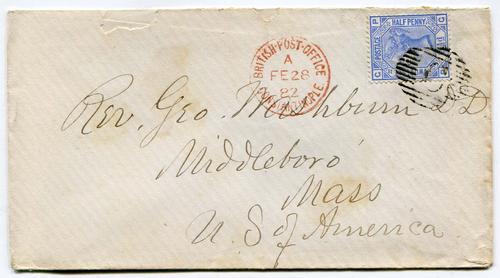 BRITISH·POST·OFFICE
A
FE 28
82
CONSTANTINOPLE
P G
HALF PENNY
POSTAGE
G P
C
Rev. Geo. Washburn D D
Middleboro
Mass
U. S of America.